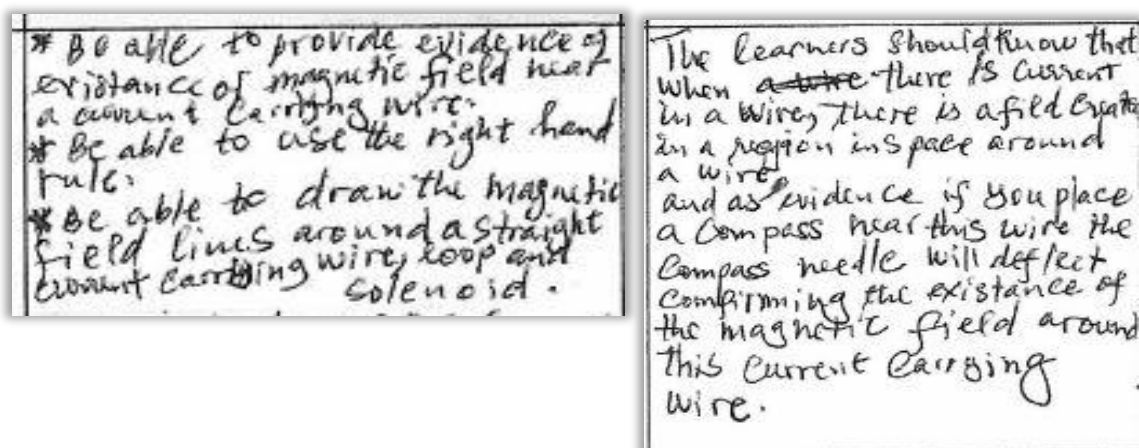 * Be able to provide evidence of
existance of magnetic field near
a current carrying wire.
* Be able to use the right hand
rule.
* Be able to draw the magnetic
field lines around a straight
current carrying wire, loop and
solenoid.
The learners should know that
when a wire there is current
in a wire, there is a fild create
in a region in space around
a wire
and as evidence if you place
a compass near this wire the
compass needle will deflect
compirming the existance of
the magnetic field around
this current carrying
wire.